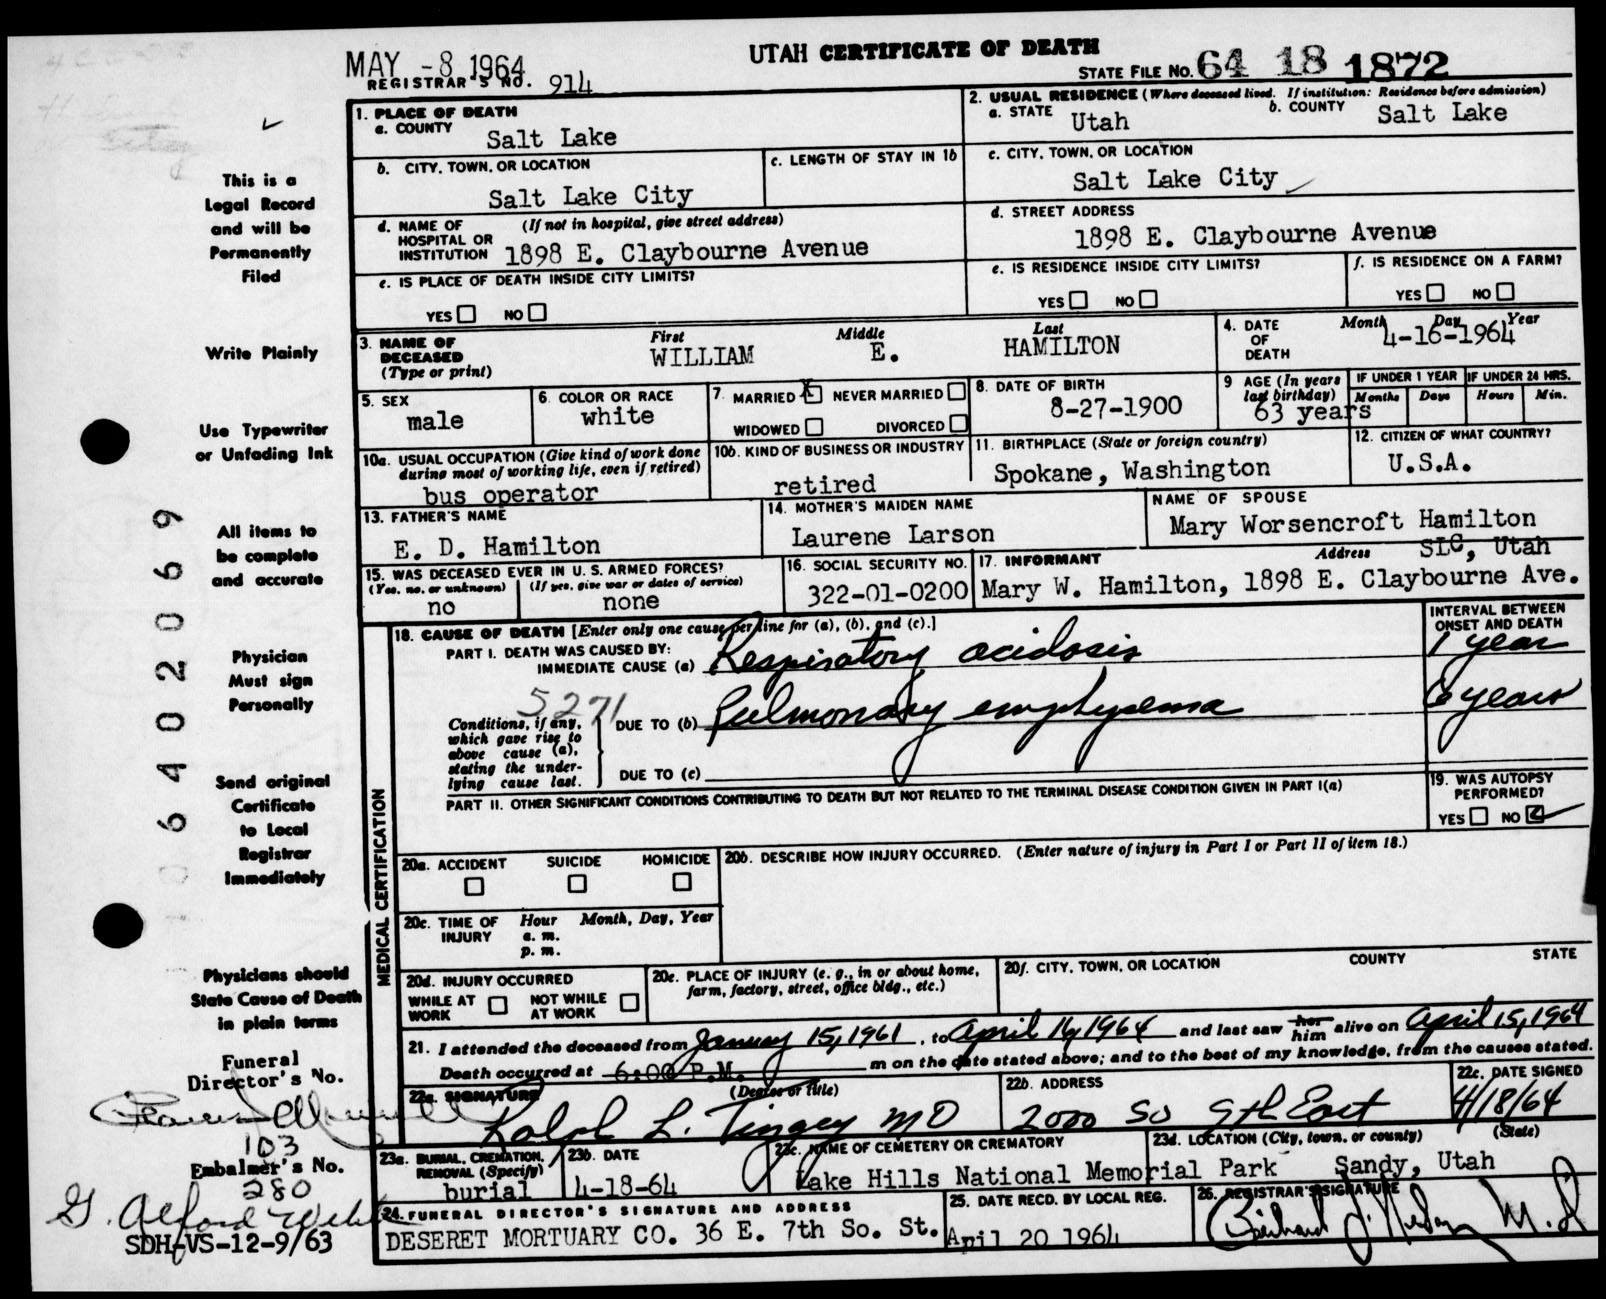 MAY -8 1964
UTAH CERTIFICATE OF DEATH
REGISTRAR'S NO. 914
STATE FILE NO. 64 18 1872
1. PLACE OF DEATH
a. COUNTY
Salt Lake
2. USUAL RESIDENCE (Where deceased lived. If institution: Residence before admission)
a. STATE Utah
b. COUNTY Salt Lake
b. CITY, TOWN, OR LOCATION
Salt Lake City
c. LENGTH OF STAY IN 1b
c. CITY, TOWN, OR LOCATION
Salt Lake City
d. NAME OF HOSPITAL OR INSTITUTION (If not in hospital, give street address)
1898 E. Claybourne Avenue
d. STREET ADDRESS
1898 E. Claybourne Avenue
e. IS PLACE OF DEATH INSIDE CITY LIMITS?
YES NO
e. IS RESIDENCE INSIDE CITY LIMITS?
YES NO
f. IS RESIDENCE ON A FARM?
YES NO
3. NAME OF DECEASED (Type or print)
First Middle Last
WILLIAM E. HAMILTON
4. DATE OF DEATH
Month Day Year
4-16-1964
5. SEX
male
6. COLOR OR RACE
white
7. MARRIED X NEVER MARRIED
WIDOWED DIVORCED
8. DATE OF BIRTH
8-27-1900
9 AGE (In years last birthday)
63 years
IF UNDER 1 YEAR
Months Days
IF UNDER 24 HRS.
Hours Min.
10a. USUAL OCCUPATION (Give kind of work done during most of working life, even if retired)
bus operator
10b. KIND OF BUSINESS OR INDUSTRY
retired
11. BIRTHPLACE (State or foreign country)
Spokane, Washington
12. CITIZEN OF WHAT COUNTRY?
U.S.A.
13. FATHER'S NAME
E. D. Hamilton
14. MOTHER'S MAIDEN NAME
Laurene Larson
NAME OF SPOUSE
Mary Worsencroft Hamilton
15. WAS DECEASED EVER IN U. S. ARMED FORCES?
(Yes, no, or unknown) (If yes, give war or dates of service)
no none
16. SOCIAL SECURITY NO.
322-01-0200
17. INFORMANT Address SLC, Utah
Mary W. Hamilton, 1898 E. Claybourne Ave.
MEDICAL CERTIFICATION
18. CAUSE OF DEATH [Enter only one cause per line for (a), (b), and (c).]
INTERVAL BETWEEN ONSET AND DEATH
PART I. DEATH WAS CAUSED BY:
IMMEDIATE CAUSE (a) Respiratory acidosis 1 year
5271
Conditions, if any, which gave rise to above cause (a), stating the underlying cause last.
DUE TO (b) Pulmonary emphysema 6 years
DUE TO (c)
PART II. OTHER SIGNIFICANT CONDITIONS CONTRIBUTING TO DEATH BUT NOT RELATED TO THE TERMINAL DISEASE CONDITION GIVEN IN PART I(a)
19. WAS AUTOPSY PERFORMED?
YES NO
20a. ACCIDENT SUICIDE HOMICIDE
20b. DESCRIBE HOW INJURY OCCURRED. (Enter nature of injury in Part I or Part II of item 18.)
20c. TIME OF INJURY Hour Month, Day, Year
a. m.
p. m.
20d. INJURY OCCURRED
WHILE AT WORK NOT WHILE AT WORK
20e. PLACE OF INJURY (e. g., in or about home, farm, factory, street, office bldg., etc.)
20f. CITY, TOWN, OR LOCATION COUNTY STATE
21. I attended the deceased from January 15, 1961, to April 16, 1964 and last saw her him alive on April 15, 1964
Death occurred at 6:00 P.M. m on the date stated above; and to the best of my knowledge, from the causes stated.
22a. SIGNATURE (Degree or title)
Ralph L. Tingey MD
22b. ADDRESS
2000 So 9th East
22c. DATE SIGNED
4/18/64
23a. BURIAL, CREMATION, REMOVAL (Specify)
burial
23b. DATE
4-18-64
23c. NAME OF CEMETERY OR CREMATORY
Lake Hills National Memorial Park
23d. LOCATION (City, town, or county) (State)
Sandy, Utah
24. FUNERAL DIRECTOR'S SIGNATURE AND ADDRESS
DESERET MORTUARY CO. 36 E. 7th So. St.
25. DATE RECD. BY LOCAL REG.
April 20 1964
26. REGISTRAR'S SIGNATURE
M.D.
This is a
Legal Record
and will be
Permanently
Filed
Write Plainly
Use Typewriter
or Unfading Ink
All items to
be complete
and accurate
Physician
Must sign
Personally
Send original
Certificate
to Local
Registrar
Immediately
Physicians should
State Cause of Death
in plain terms
Funeral
Director's No.
103
Embalmer's No.
280
SDH-VS-12-9/63
106402069